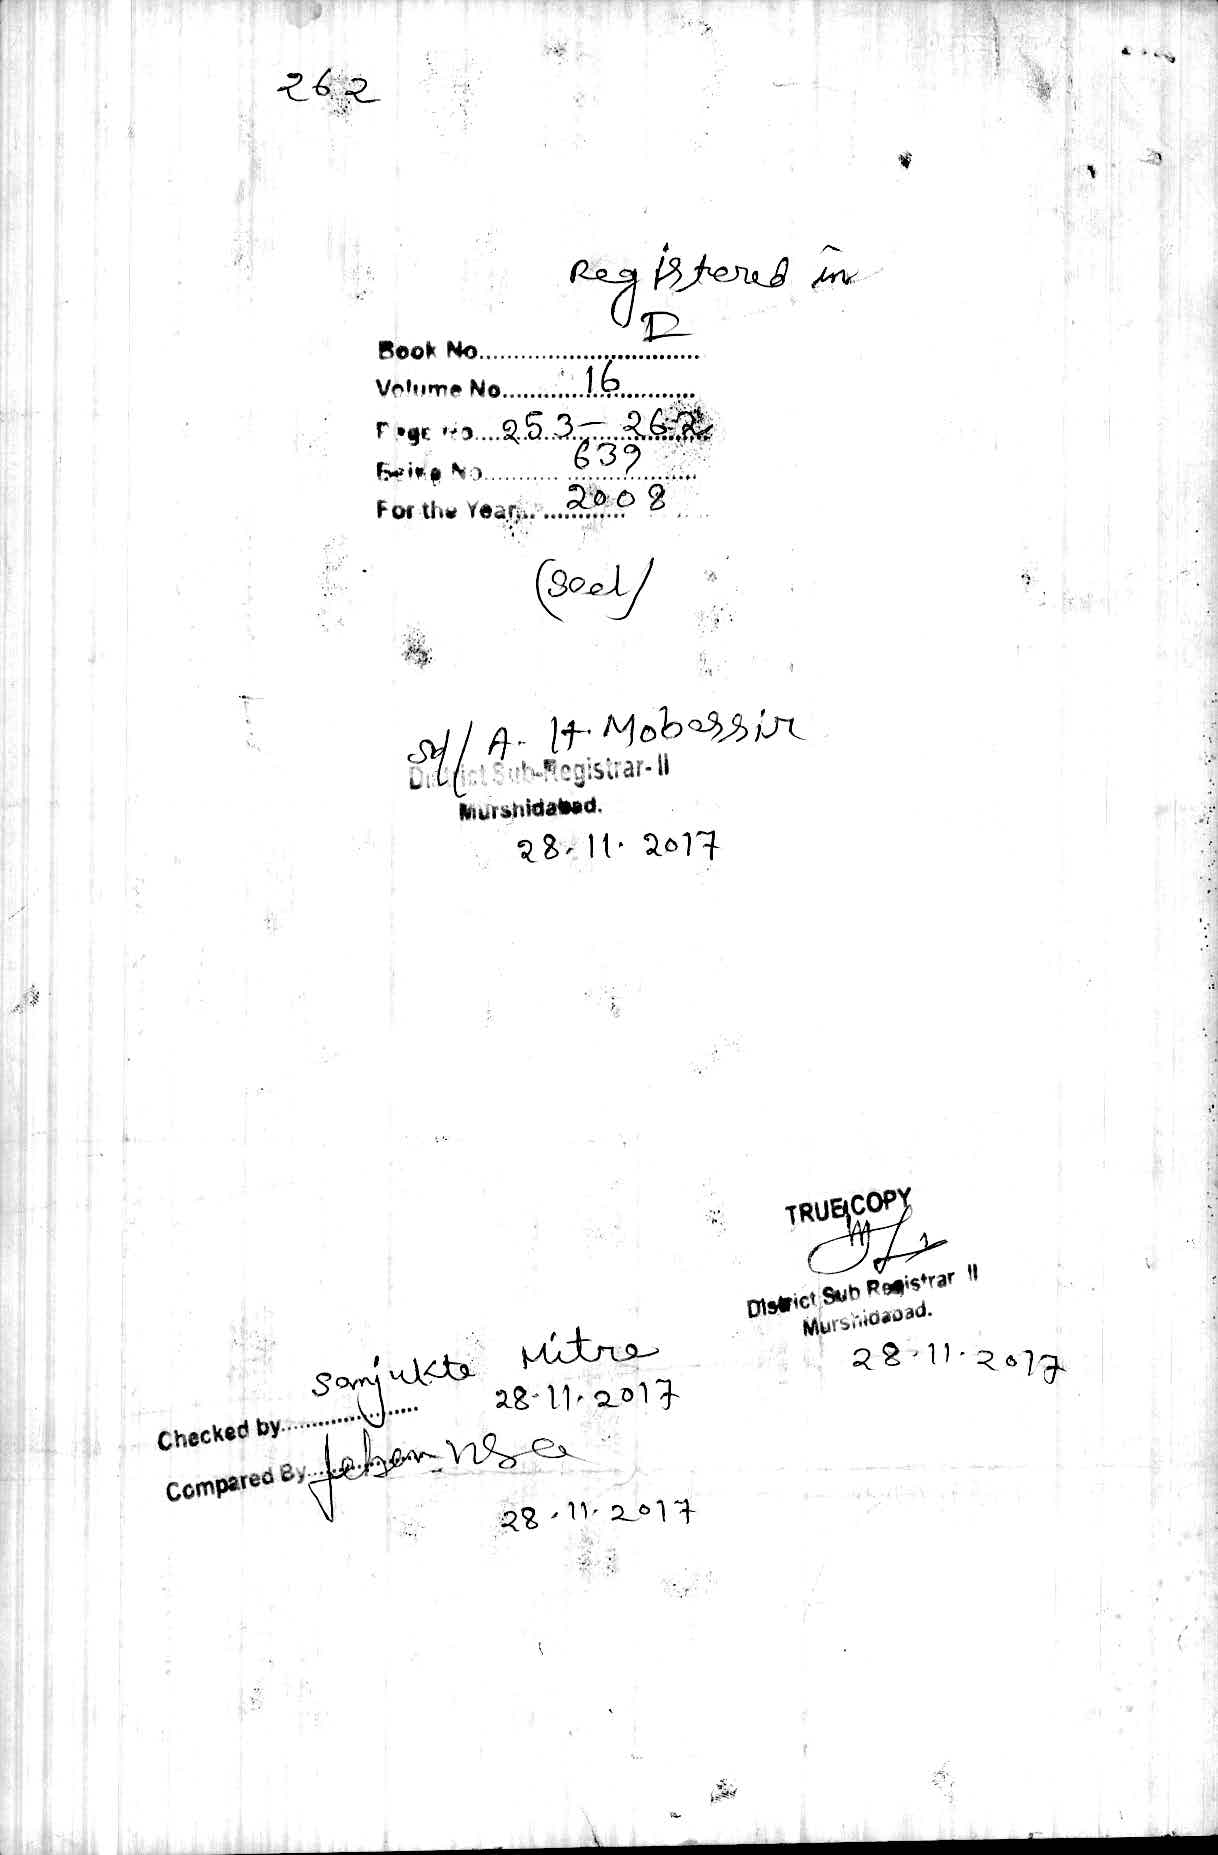 262
Registered in
Book No............ I
Volume No............ 16
Page No..... 253 – 262
Being No............ 639
For the Year........... 2008
(Seal)
Sd/ A. H. Mobassir
District Sub-Registrar-II
Murshidabad.
28.11.2017
TRUE COPY
District Sub Registrar II
Murshidabad.
28.11.2017
Sanjukta Mitra
28.11.2017
Checked by....................
Compared By...........
28.11.2017